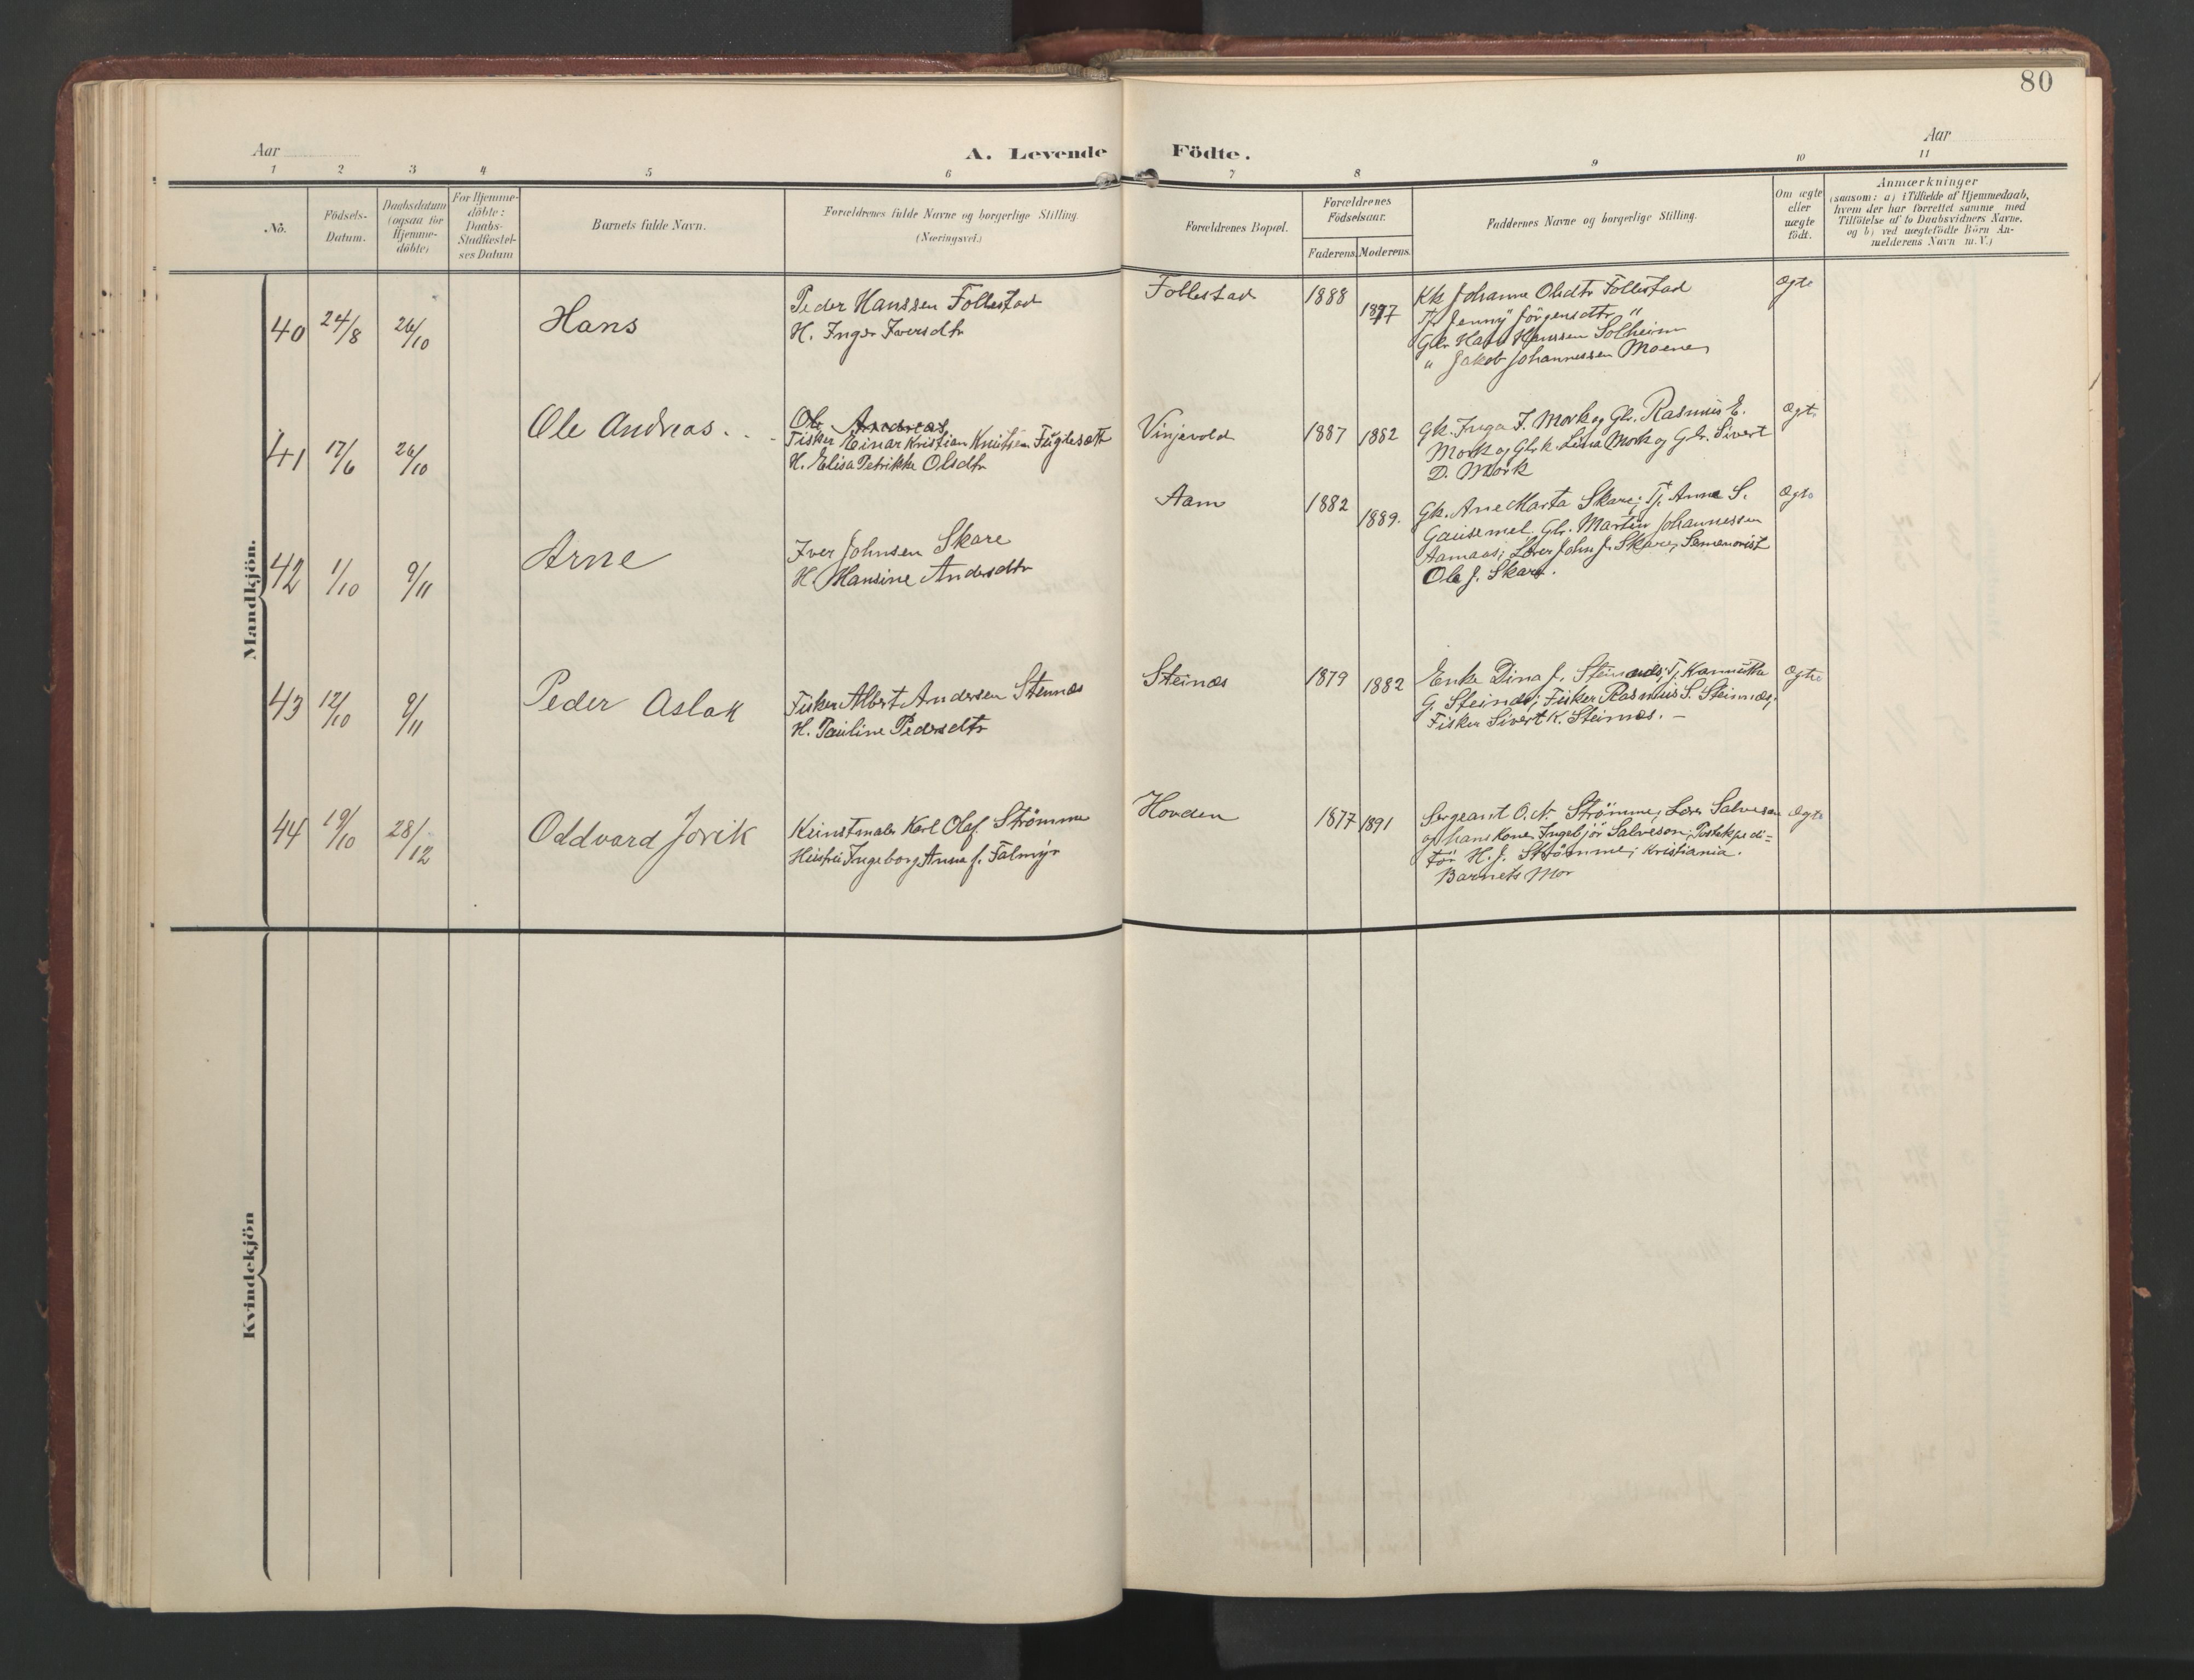 80
Aar
A. Levende Födte.
Aar
1 2 3 4 5 6 7 8 9 10 11
No.
Födsels-
Datum.
Daabsdatum
(ogsaa for
Hjemme-
döbte)
For Hjemme-
döbte:
Daabs-
Stadfæstel-
ses Datum
Barnets fulde Navn.
Forældrenes fulde Navne og borgerlige Stilling.
(Næringsvei.)
Forældrenes Bopæl.
Forældrenes
Födselsaar.
Faderens.
Moderens.
Faddernes Navne og borgerlige Stilling.
Om ægte
eller
uægte
födt.
Anmærkninger
(saasom: a) i Tilfælde af Hjemmedaab,
hvem der har forrettet samme med
Tilföielse af to Daabsvidners Navne,
og b) ved uægtefödte Börn An-
melderens Navn m. V.)
Mandkjön.
40 24/8 26/10 Hans
Peder Hanssen Follestad
H. Inger Iversdtr
Follestad 1888 1887
Kk Johanne Olsdtr Follestad
Tj. Jenny Jörgensdtr "
Gkr Hans Hanssen Solheim
" Jakob Johannessen Moene
Ægte
41 17/6 26/10 Ole Andreas.
Ole Andreas
Fisker Einar Kristian Knutsen Fuglesæth
H. Elisa Petrikke Olsdtr
Vinjevold 1887 1882
Gk. Inga I. Mork og Gkr. Rasmus E.
Mork og Gk. Lina Mork og Gkr. Sivert
D. Mork
Ægte
42 1/10 9/11 Arne
Iver Johnsen Skare
H. Hansine Andersdtr
Aam 1882 1889.
Gk. Ane Marta Skare; Tj. Anna S.
Gausemel. Gkr. Martin Johannessen
Aamaas; Lærer John J. Skare; Semenarist
Ole J. Skare.
Ægte
43 12/10 9/11 Peder Aslak
Fisker Albert Andersen Stennæs
H. Pauline Pedersdtr
Steinæs 1879 1882
Enke Dina J. Steinnæs; Tj.
G. Steinæs; Fisker Rasmus S. Steinnæs;
Fisker Sivert K. Steinnæs. –
Ægte
44 19/10 28/12 Oddvard Jorik
Kunstmaler Karl Olaf Strömme
Husfru Ingeborg Anna f. Falmyr
Hovden 1877 1891
Sergeant O. A. Strömme; Lærer Salveson
og hans Kone Ingebjör Salveson; Postekspedi=
tör H. J. Strömme; Kristiania.
Barnets Mor
Ægte
Kvindekjön